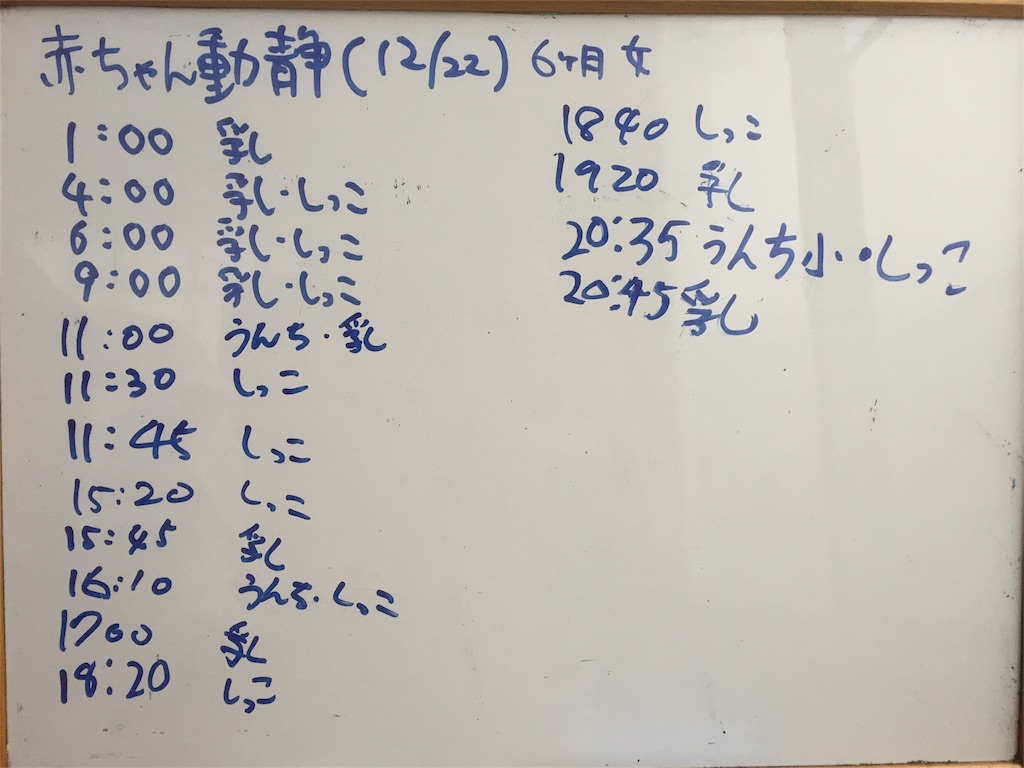 赤ちゃん動静(12/22) 6ヶ月 女
1:00 乳
4:00 乳・しっこ
6:00 乳・しっこ
9:00 乳・しっこ
11:00 うんち・乳
11:30 しっこ
11:45 しっこ
15:20 しっこ
15:45 乳
16:10 うんち・しっこ
1700 乳
18:20 しっこ
1840 しっこ
1920 乳
20:35 うんち小・しっこ
20:45 乳